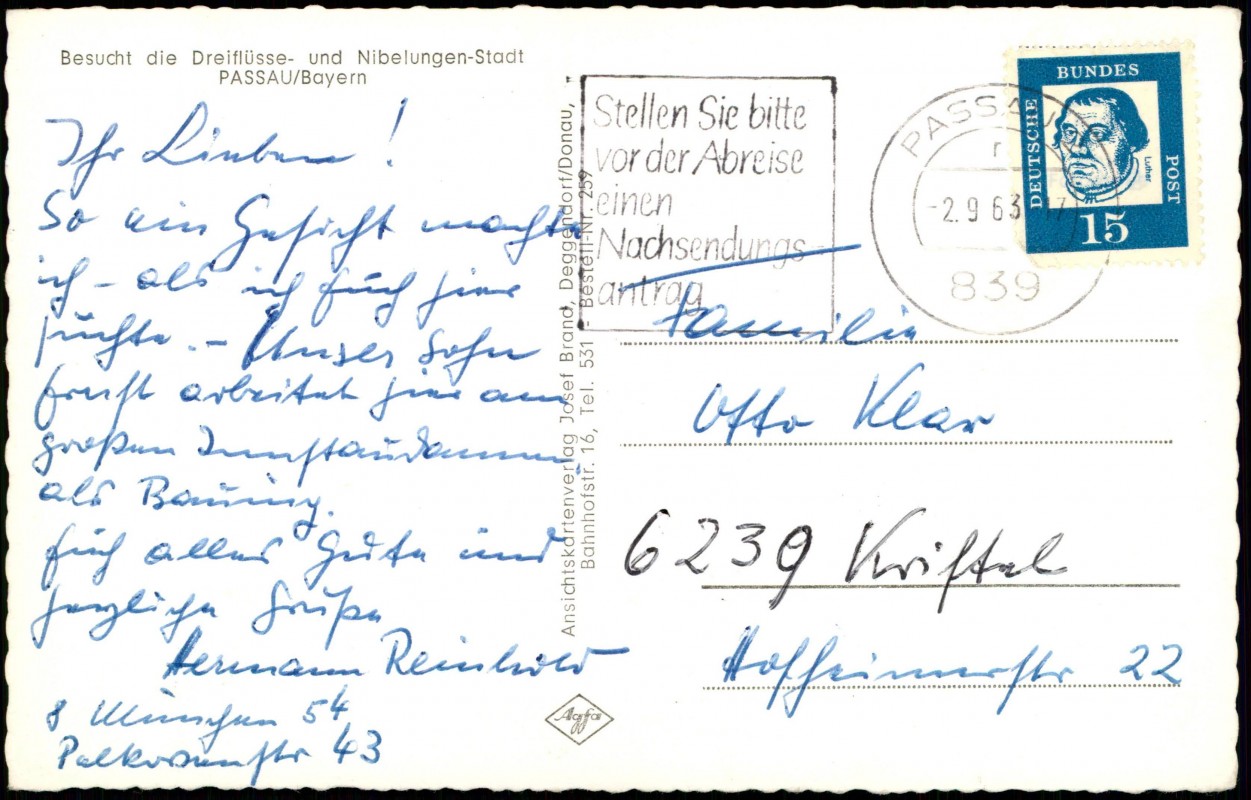 Besucht die Dreiflüsse- und Nibelungen-Stadt
PASSAU/Bayern
Ihr Lieben!
So ein Gesicht machte
ich - als ich Euch hier
suchte. - Unser Sohn
Horst arbeitet hier am
großen Innstaudamm
als Bauing.
Euch alles Gute und
herzliche Grüße
Hermann Reinhold
8 München 54
str 43
Ansichtskartenverlag Josef Brand, Deggendorf/Donau,
Bahnhofstr. 16, Tel. 531 - Bestell-Nr. 259
Agfa
Stellen Sie bitte
vor der Abreise
einen
Nachsendungs-
antrag
PASSAU
-2.9.63-17
839
DEUTSCHE
BUNDES
POST
Luther
15
Familie
Otto Klar
6239 Kriftel
Hofheimerstr 22